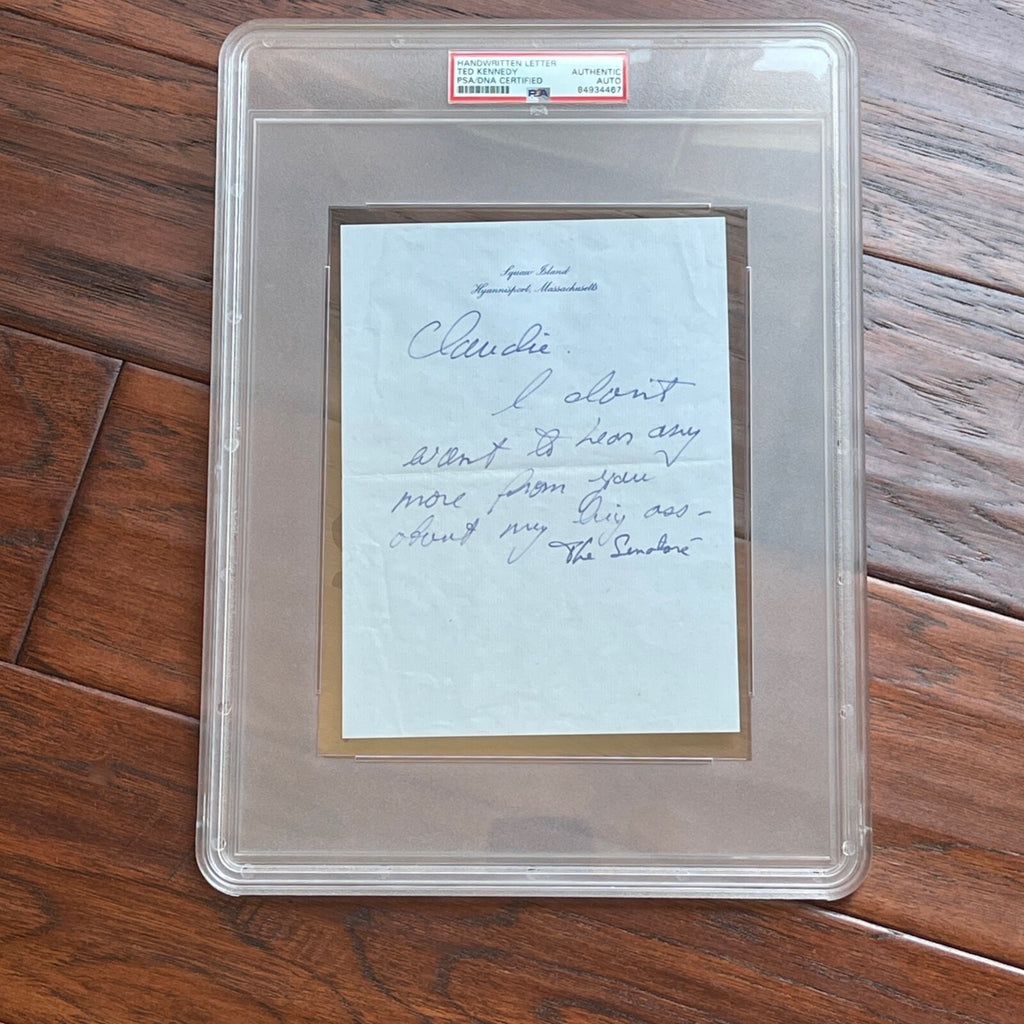 HANDWRITTEN LETTER
TED KENNEDY AUTHENTIC
PSA/DNA CERTIFIED AUTO
PSA 84934467
Squaw Island
Hyannisport, Massachusetts
Claudie.
I don't
want to hear any
more from you
about my big ass-
The Senator